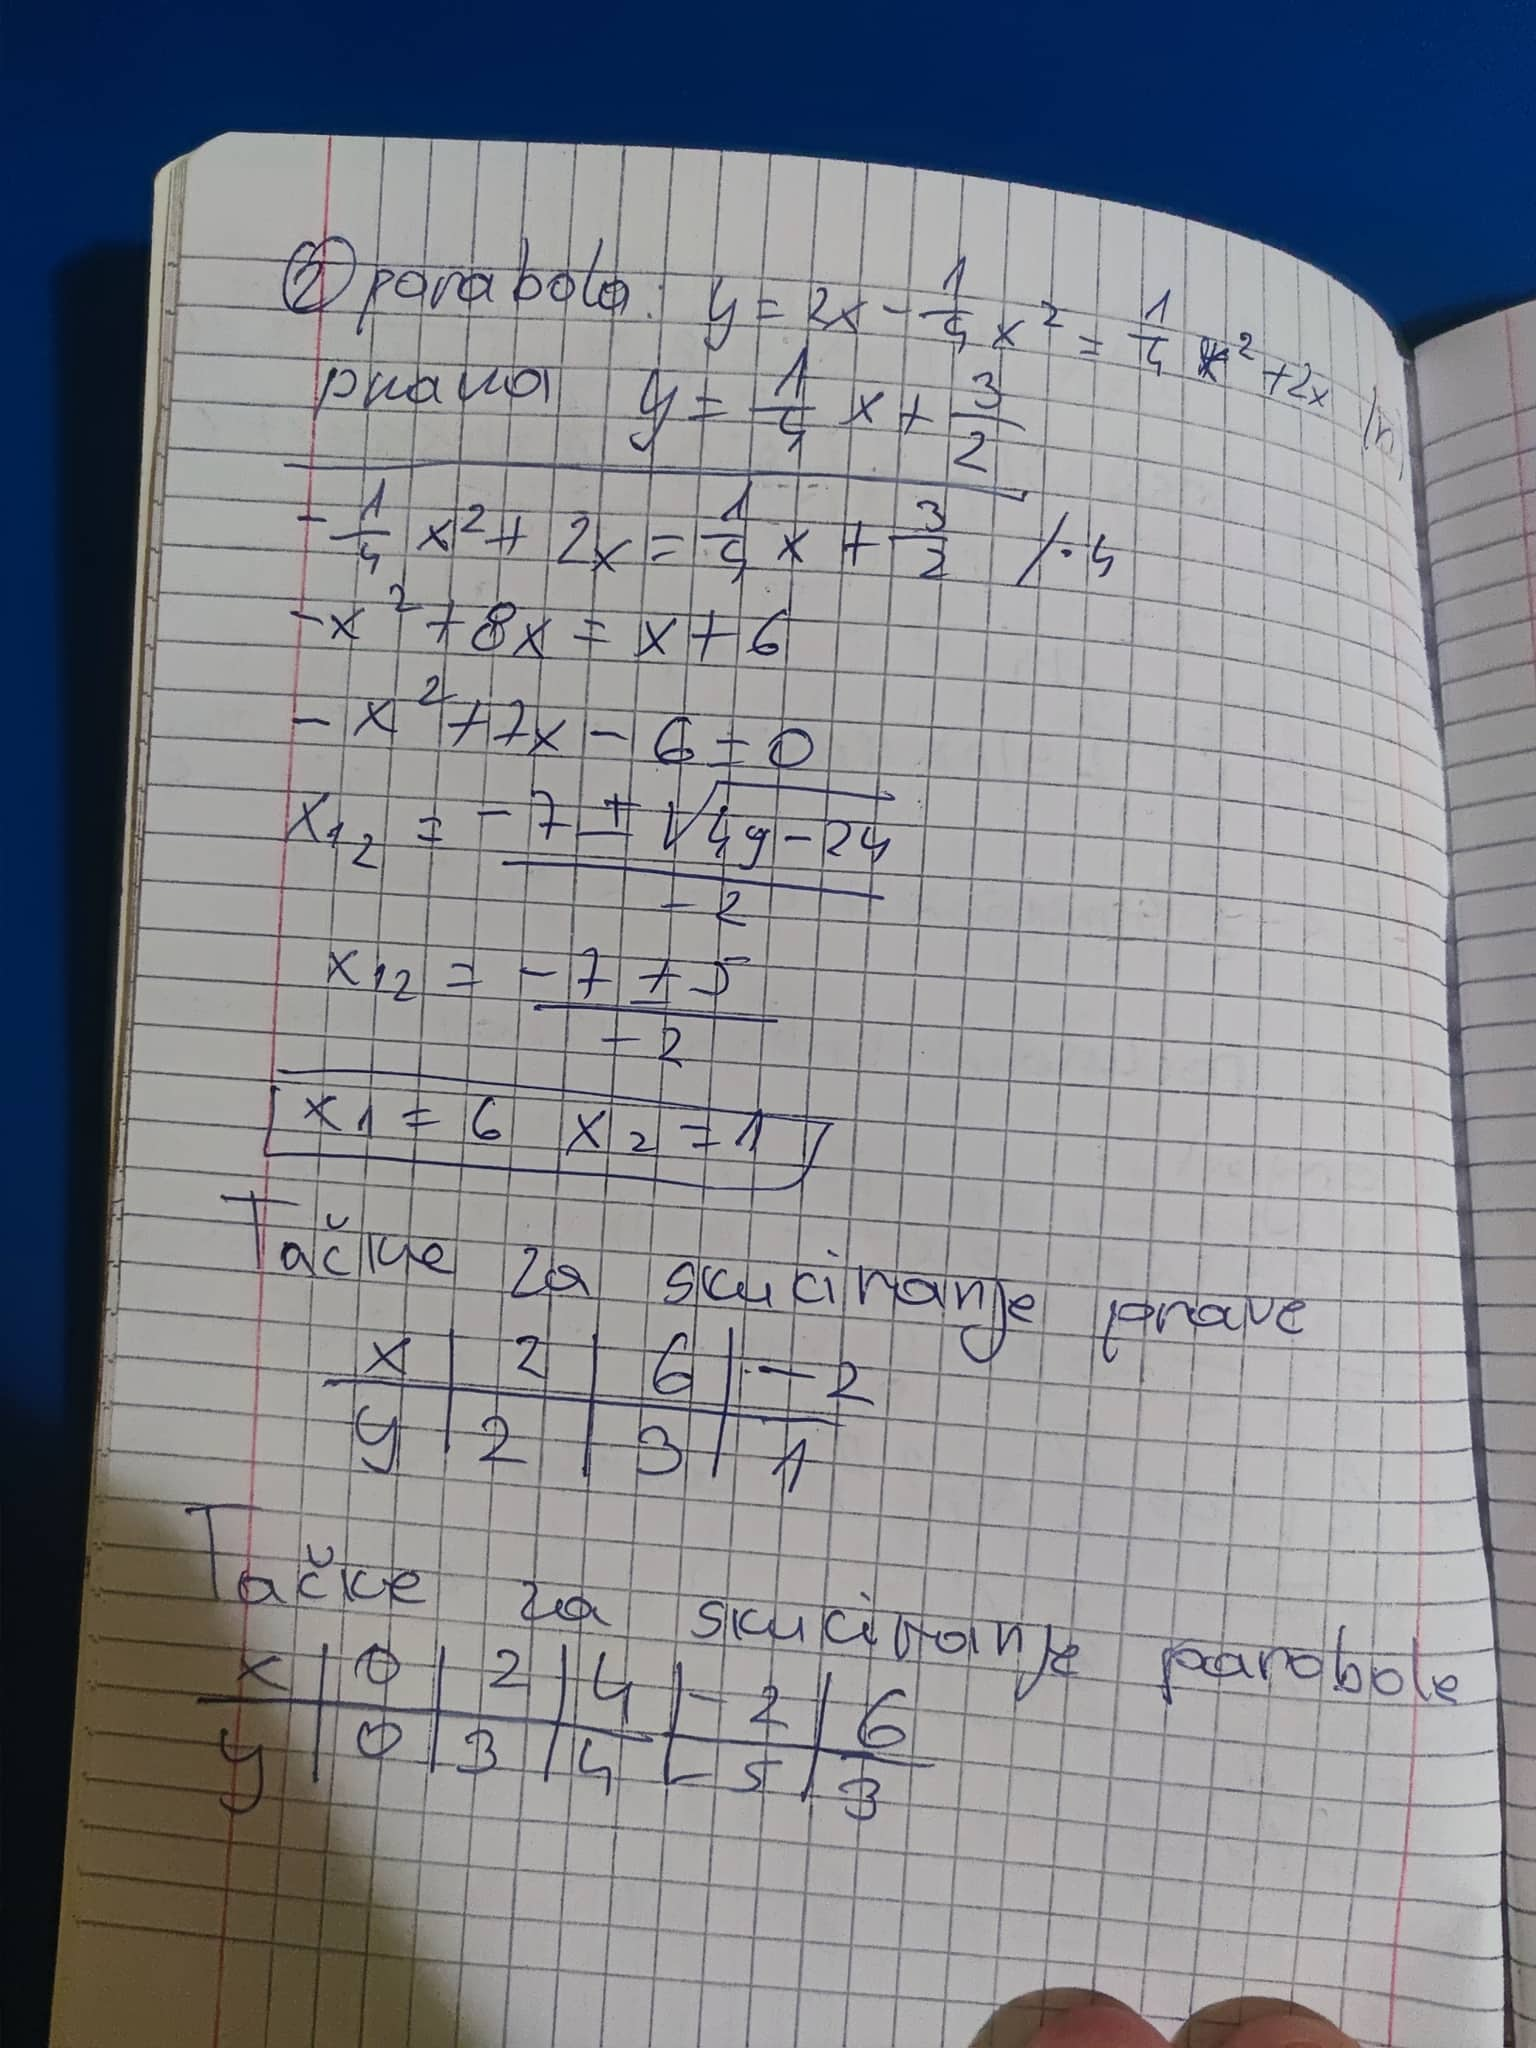 ② parabola: y = 2x - 1/4 x² = 1/4 x² + 2x
prava y = 1/4 x + 3/2
- 1/4 x² + 2x = 1/4 x + 3/2 /·4
-x² + 8x = x + 6
-x² + 7x - 6 = 0
x₁₂ = (-7 ± √(49 - 24)) / -2
x₁₂ = (-7 ± 5) / -2
x₁ = 6 x₂ = 1
Tačke za skuciranje prave
x | 2 | 6 | -2
y | 2 | 3 | 1
Tačke za skuciranje parabole
x | 0 | 2 | 4 | -2 | 6
y | 0 | 3 | 4 | -5 | 3